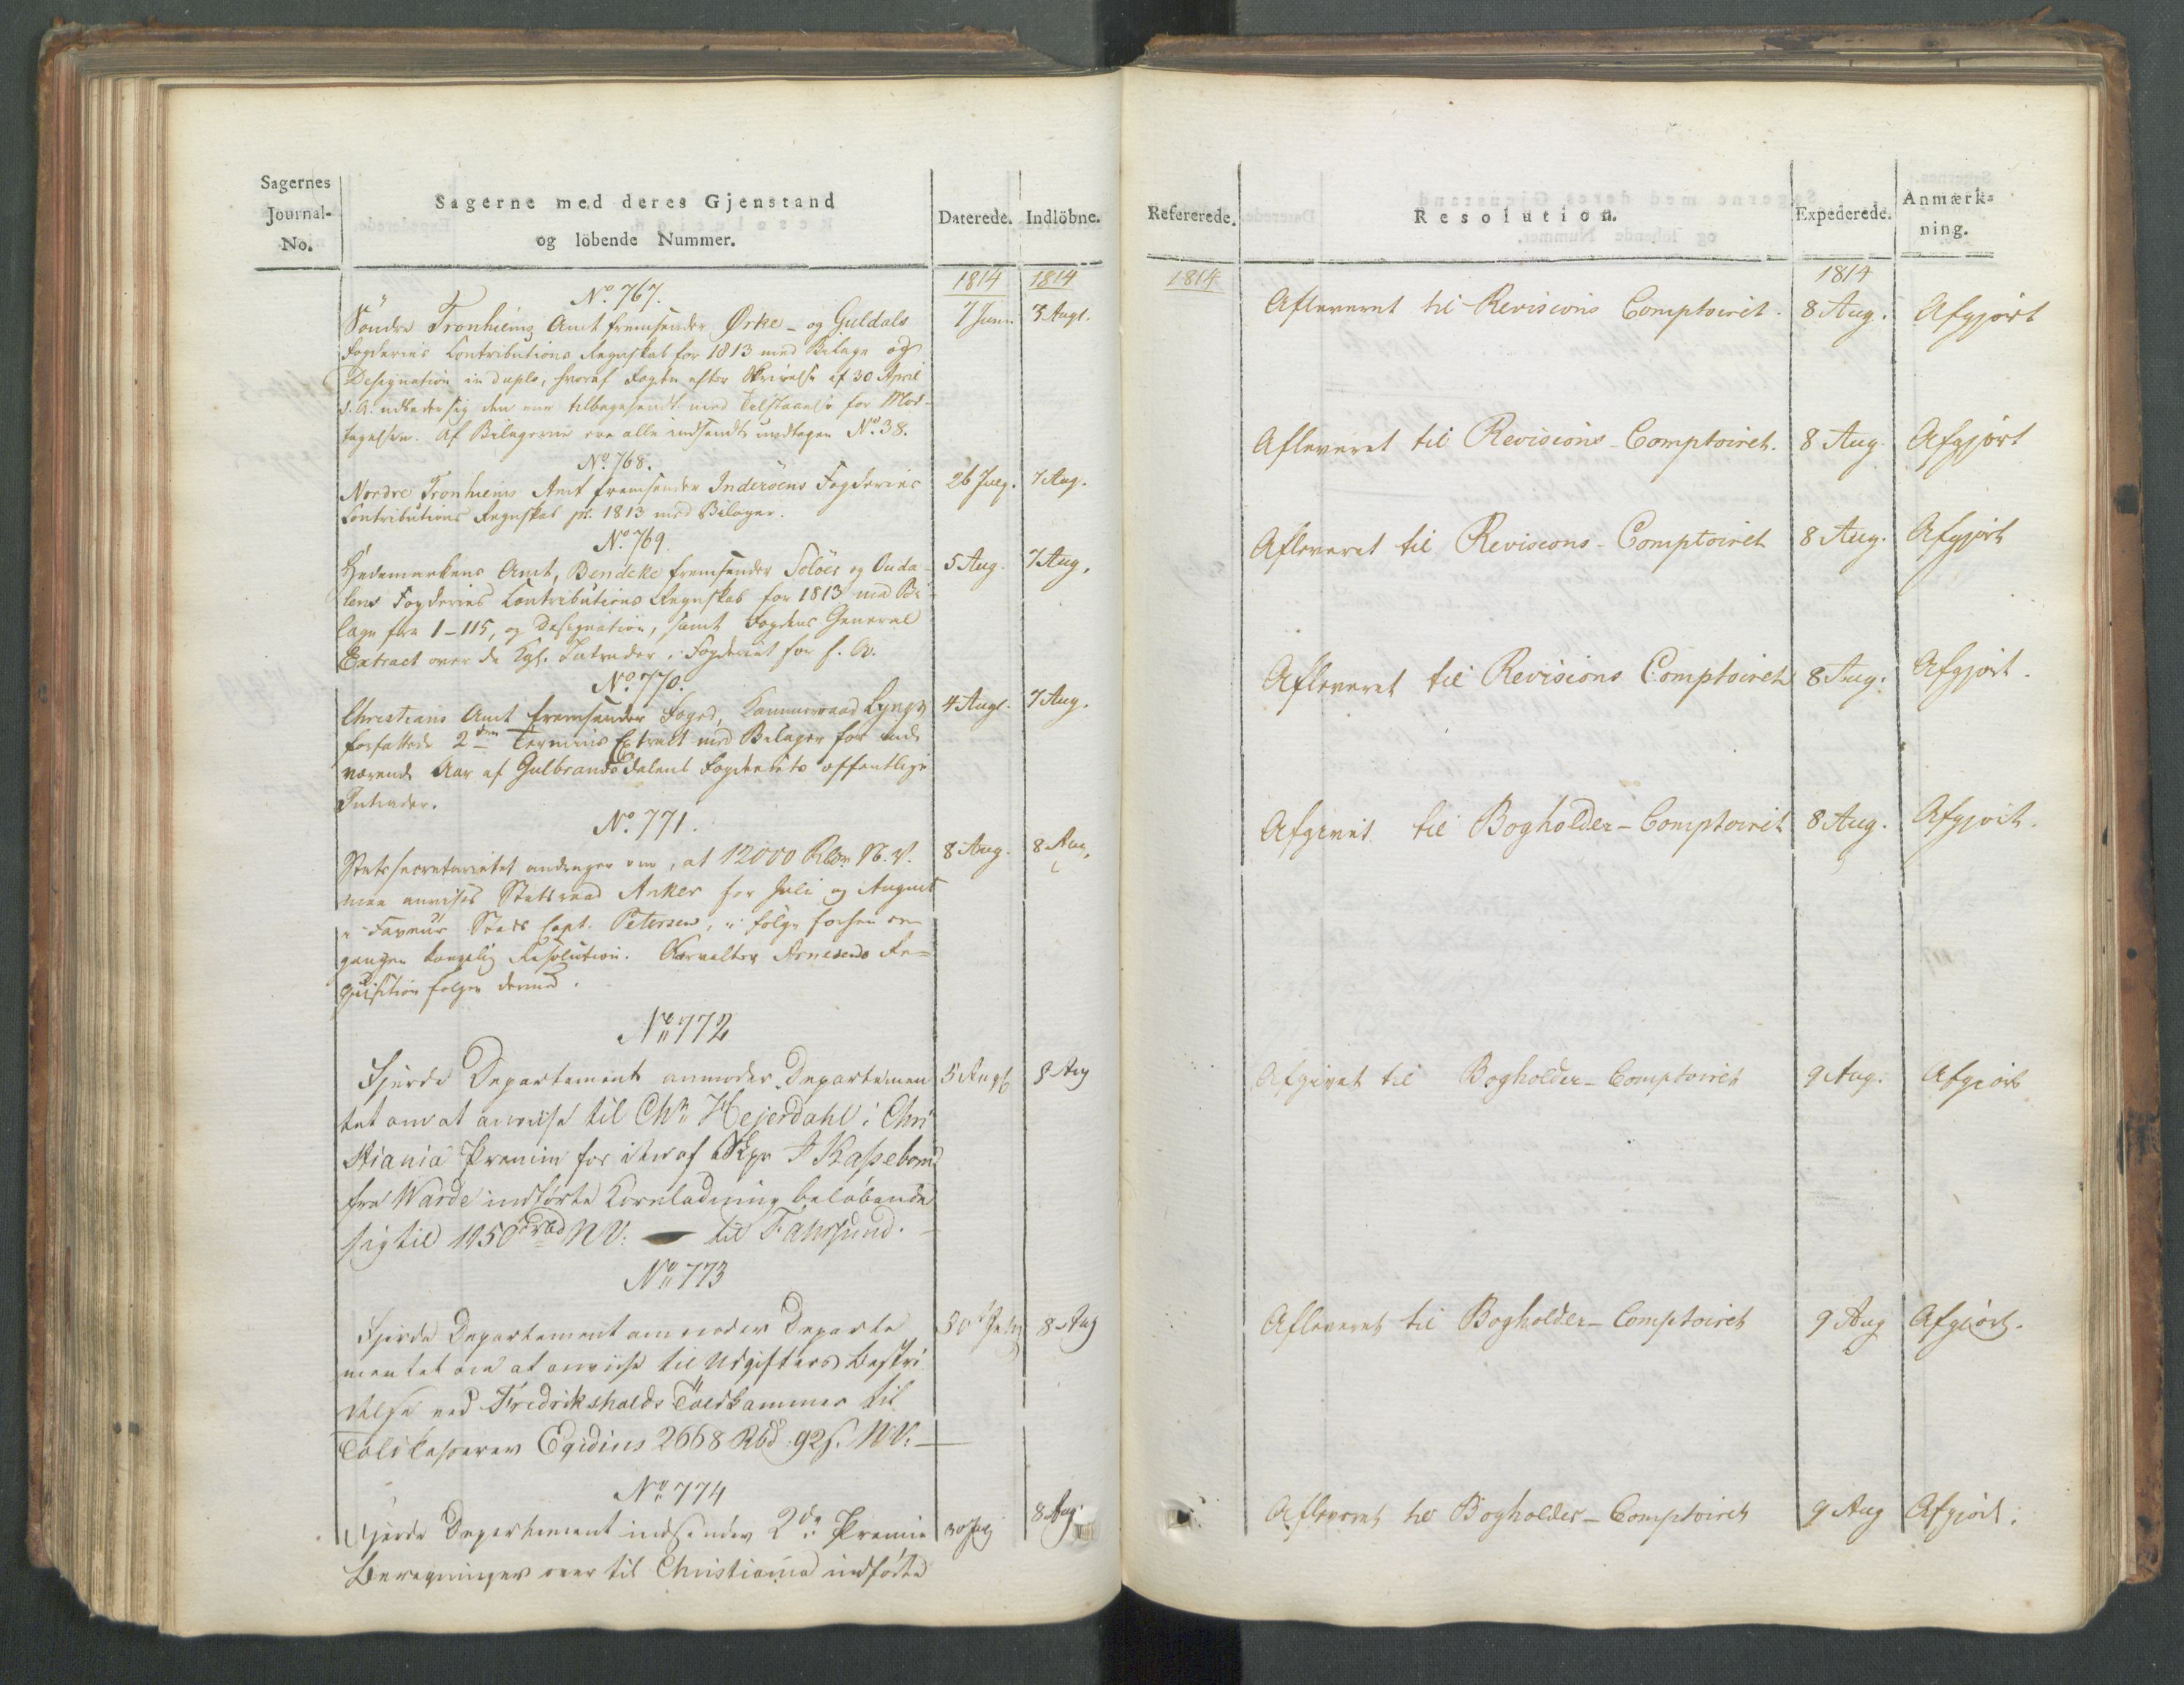 Sagernes
Journal-
No.
Sagerne med deres Gjenstand
og löbende Nummer.
Daterede.
Indlöbne.
1814
1814
No. 767.
Söndre Tronhiems Amt fremsender Ørke- og Guldals
7 Juni
3 Augt.
Fogderies Contributions Regnskab for 1813 med Bilage og
Designation in duplo, hvoraf Fogden efter Skrivelse af 30 April
d. A. udbeder sig den ene tilbagesendt med Tilstaaelse for Mod-
tagelsen. Af Bilagerne ere alle indsendte undtagen No. 38.
No. 768.
Nordre Tronhiems Amt fremsender Inderöens Fogderies
26 July.
7 Aug.
Contributions Regnskab pr. 1813 med Bilager.
No. 769
Hedemarkens Amt, Bendeke fremsender Solöer og Ouda-
5 Aug.
7 Aug.
lens Fogderies Contributions Regnskab for 1813 med Bi-
lage fra 1-115, og Designation, samt Fogdens General
Extract over de Kgl. Intrader i Fogderiet for s. A.
No. 770.
Christians Amt fremsender Foged, Kammerraad Lyngs
4 Augt.
7 Aug.
forfattede 2den Termins Extract med Bilager for inde
værende Aar af Gulbrandsdalens Fogderiets offentlige
Intrader.
No. 771.
Statssecretariatet andrager om, at 12000 Rbdr. N. V.
8 Aug.
8 Aug.
maa anvises Statsraad Anker for Juli og August
i Faveur Stads Capt. Petersen, i Følge herom er
gangen kongelig Resolution. Forvalter Arnesens Re-
quisition følger dermed.
No. 772
Fjerde Departement anmoder Departemen
5 Augt
8 Aug
tet om at anviise til Chr. Hejerdahl i Chri
stiania Præmie for den af Skpr J Kassebom
fra Warde indførte Kornladning beløbende
sig til 1150 rbd NV: — til Fahrsund.
No. 773
Fjerde Departement anmoder Departe
30 July
8 Aug
mentet om at anviise til Udgifters Bestri
delse ved Fredrikshalds Toldkammer til
Toldkasserer Egidius 2668 Rbd: 92 s. NV: —
No. 774
Fjerde Departement indsender 2de Præmie
30 July
8 Aug:
Beregninger over til Christiania indførte
Refererede.
Resolution.
Expederede.
Anmærk-
ning.
1814
1814
Afleveret til Revisions Comptoiret.
8 Aug.
Afgjort
Afleveret til Revisions-Comptoiret.
8 Aug.
Afgjort
Afleveret til Revisions-Comptoiret
8 Aug.
Afgjort
Afleveret til Revisions Comptoiret
8 Aug.
Afgjort.
Afgivet til Bogholder-Comptoiret
8 Aug.
Afgjort.
Afgivet til Bogholder-Comptoiret
9 Aug.
Afgiort
Afleveret til Bogholder-Comptoiret
9 Aug
Afgiort.
Afleveret til Bogholder-Comptoiret
9 Aug
Afgjort.